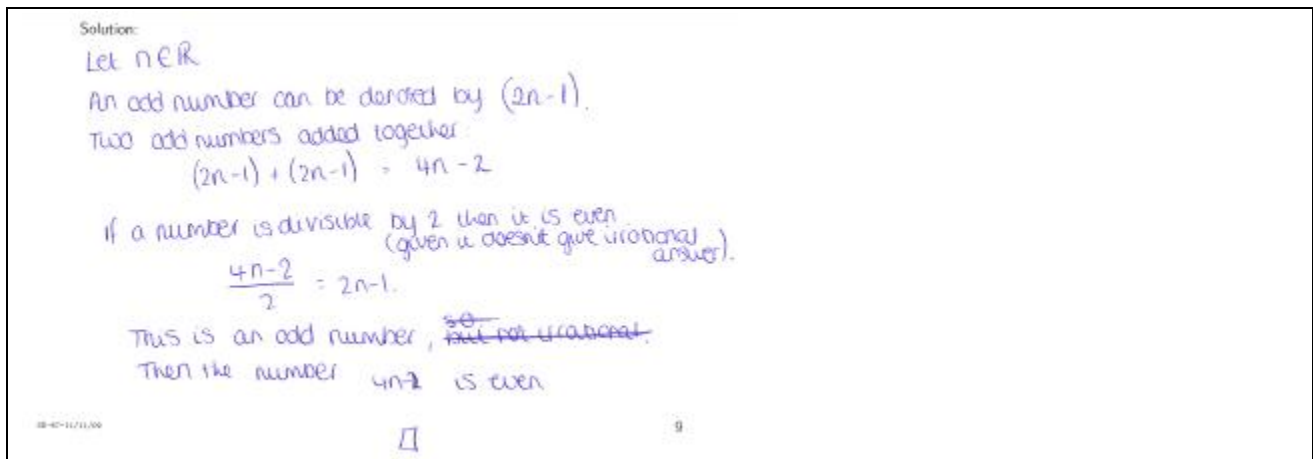 Solution:
Let n∈ℝ
An odd number can be denoted by (2n-1).
Two odd numbers added together:
(2n-1) + (2n-1) = 4n - 2
If a number is divisible by 2 then it is even
(given it doesn't give irrational
answer).
4n-2
2
= 2n-1.
This is an odd number, so
but not irrational.
Then the number 4n-2 is even
□
9